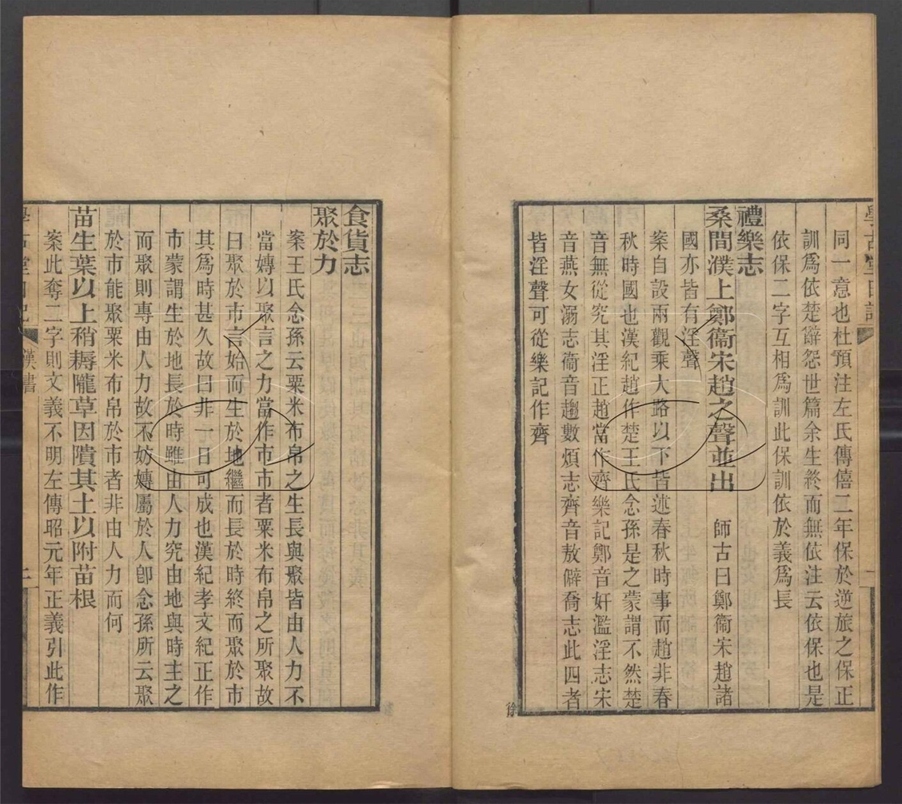 同一意也杜預注左氏傳僖二年保於逆旅之保正
訓爲依楚辭怨世篇余生終而無依注云依保也是
依保二字互相爲訓此保訓依於義爲長
禮樂志
桑間濮上鄭衞宋趙之聲並出　師古曰鄭衞宋趙諸
國亦皆有淫聲
案自設兩觀乘大路以下皆述春秋時事而趙非春
秋時國也漢紀趙作楚王氏念孫是之蒙謂不然楚
音無從究其淫正趙當作齊樂記鄭音奸濫淫志宋
音燕女溺志衞音趨數煩志齊音敖僻喬志此四者
皆淫聲可從樂記作齊
食貨志
聚於力
案王氏念孫云粟米布帛之生長與聚皆由人力不
當專以聚言之力當作市市者粟米布帛之所聚故
曰聚於市言始而生於地繼而長於時終而聚於市
其爲時甚久故曰非一日可成也漢紀孝文紀正作
市蒙謂生於地長於時雖由人力究由地與時主之
而聚則專由人力故不妨專屬於人卽念孫所云聚
於市能聚粟米布帛於市者非由人力而何
苗生葉以上稍耨隴草因隤其土以附苗根
案此奪二字則文義不明左傳昭元年正義引此作
漢書